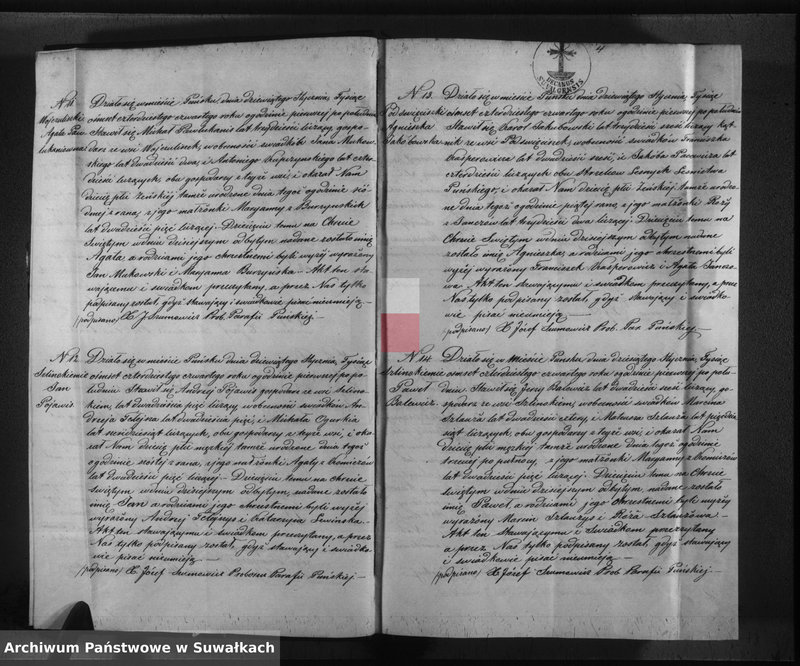 N. 11.
Wojciuliszki
Agata Paw
lukaniowna
Działo się w mieście Puńsku dnia dziewiątego Stycznia, Tysiąc
ośmset czterdziestego czwartego roku o godzinie pierwszej po południu
Stawił się Michał Pawlukanis lat trzydzieści liczący, gospo-
darz ze wsi Wojciuliszek, w obecności świadków Jana Makow-
skiego lat dwadzieścia dwa, i Antoniego Kuprzynskiego lat czter-
dzieści liczących, obu gospodarzy z tejże wsi, i okazał Nam
dziecię płci żeńskiej tamże urodzone dnia tegoż o godzinie siód-
mej z rana, z jego małżonki Maryanny z Burzynskich
lat dwadzieścia pięć liczącej. Dziecięciu temu na Chrzcie
Świętym w dniu dzisiejszym odbytym nadane zostało imię
Agata, a rodzicami jego chrzestnemi byli wyżej wyrażony
Jan Makowski i Maryanna Burzyńska. Akt ten sta-
wającemu i świadkom przeczytany, a przez Nas tylko
podpisany został, gdyż stawający i świadkowie pisać nieumieją.
(podpisano) X. J. Szumowicz Prob. Parafii Puńskiej.
N. 12.
Jan
Pojawis
Działo się w mieście Puńsku dnia dziewiątego Stycznia, Tysiąc
ośmset czterdziestego czwartego roku o godzinie pierwszej po po-
łudniu Stawił się Andrzej Pojawis gospodarz ze wsi
lat dwadzieścia pięć liczący w obecności świadków An-
drzeja lat dwadzieścia pięć, i Michała
lat liczących, obu gospodarzy z tejże wsi, i oka-
zał Nam dziecię płci męzkiej tamże urodzone dnia tegoż
o godzinie szóstej z rana, z jego małżonki Agaty z
lat dwadzieścia pięć liczącej. Dziecięciu temu na Chrzcie
Świętym w dniu dzisiejszym odbytym, nadane zostało
imię Jan, a rodzicami jego chrzestnemi byli wyżej
wyrażony Andrzej i Katarzyna
Akt ten stawającemu i świadkom przeczytany, a przez
Nas tylko podpisany został, gdyż stawający i świadko-
wie pisać nieumieją.
(podpisano) X. Józef Szumowicz Proboszcz Parafii Puńskiej.
4
N. 13.
Agnieszka
Jakobowska
Działo się w mieście Puńsku dnia dziewiątego Stycznia, Tysiąc
ośmset czterdziestego czwartego roku o godzinie pierwszej po południu
Stawił się Karol Jakubowski lat trzydzieści sześć liczący
ze wsi w obecności świadków Franciszka
Kasperowicza lat dwadzieścia sześć, i Jakóba lat
czterdzieści liczących, obu Strzelców Leśnych Leśnictwa
Puńskiego, i okazał Nam dziecię płci żeńskiej tamże urodzo-
ne dnia tegoż o godzinie piątej z rana z jego małżonki Róży
lat trzydzieści dwa liczącej. Dziecięciu temu na
Chrzcie Świętym w dniu dzisiejszym odbytym nadane
zostało imię Agnieszka, a rodzicami jego chrzestnemi byli
wyżej wyrażony Franciszek Kasperowicz i Agata
Akt ten stawającemu i świadkom przeczytany, a przez
Nas tylko podpisany został, gdyż stawający i świadko-
wie pisać nieumieją.
(podpisano) X. Józef Szumowicz Prob. Par. Puńskiej.
N. 14.
Paweł
Balewicz
Działo się w mieście Puńsku dnia dziewiątego Stycznia, Tysiąc
ośmset czterdziestego czwartego roku o godzinie pierwszej po połu-
dniu Stawił się Jerzy Balewicz lat dwadzieścia sześć liczący go-
spodarz ze wsi w obecności świadków Marcina
lat dwadzieścia cztery, i Mateusza lat pięćdzie-
siąt liczących, obu gospodarzy z tejże wsi, i okazał Nam
dziecię płci męzkiej tamże urodzone dnia tegoż o godzinie
trzeciej po północy, z jego małżonki Maryanny z
lat dwadzieścia pięć liczącej. Dziecięciu temu na Chrzcie
Świętym w dniu dzisiejszym odbytym nadane zostało
imię Paweł, a rodzicami jego chrzestnemi byli wyżej
wyrażony Marcin i Róża
Akt ten stawającemu i świadkom przeczytany,
a przez Nas tylko podpisany został, gdyż stawający
i świadkowie pisać nieumieją.
(podpisano) X. Józef Szumowicz Prob. Parafii Puńskiej.
Archiwum Państwowe w Suwałkach